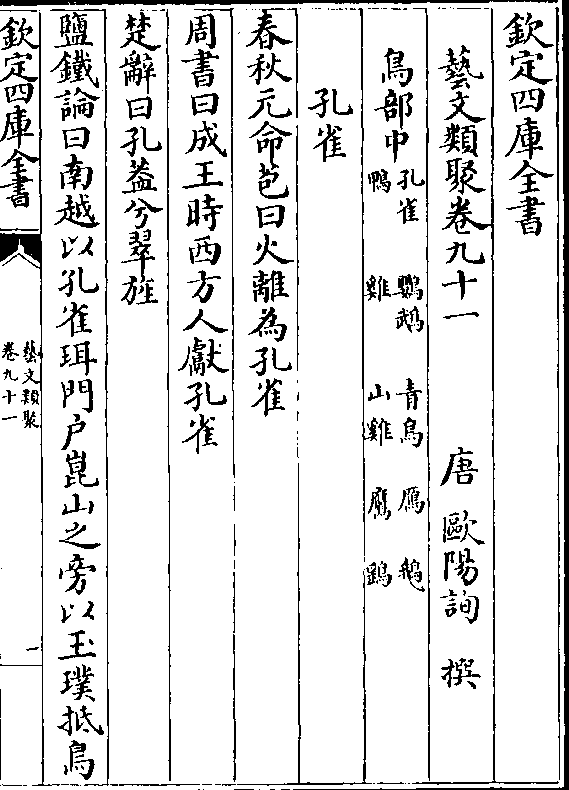 欽定四庫全書
藝文類聚卷九十一
唐 歐陽詢 撰
鳥部中 孔雀 鸚鵡 青鳥 鴈 鵝
鴨 雞 山雞 鷹 鷂
孔雀
春秋元命苞曰火離為孔雀
周書曰成王時西方人獻孔雀
楚辭曰孔葢兮翠旌
鹽鐵論曰南越以孔雀珥門户崑山之旁以玉璞抵鳥
欽定四庫全書
藝文類聚
卷九十一
一